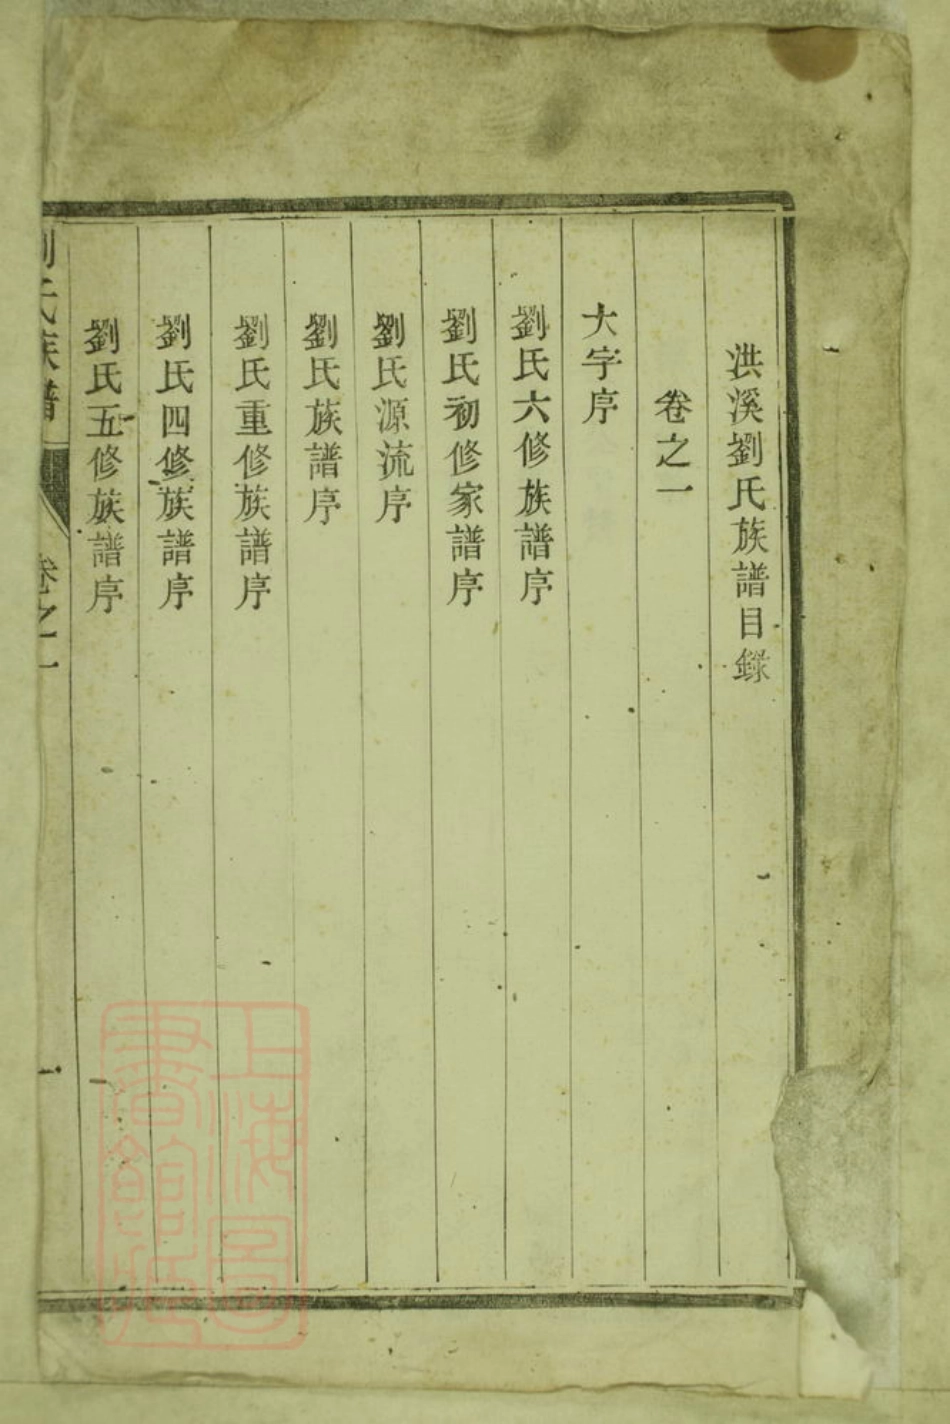 洪溪劉氏族譜目錄
卷之一
大字序
劉氏六修族譜序
劉氏初修家譜序
劉氏源流序
劉氏族譜序
劉氏重修族譜序
劉氏四修族譜序
劉氏五修族譜序
劉氏族譜
卷之一
一
上海圖書館藏